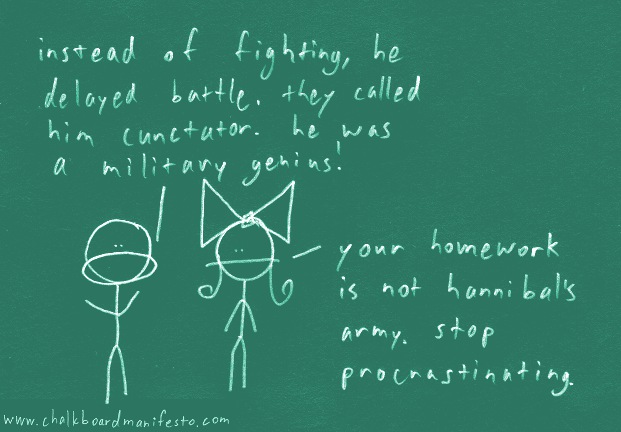 instead of fighting, he
delayed battle. they called
him cunctator. he was
a military genius!
your homework
is not hannibal's
army. stop
procrastinating.
www.chalkboardmanifesto.com